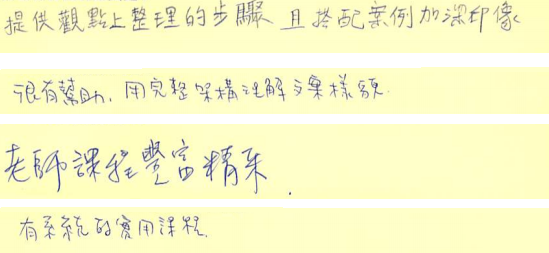 提供觀點上整理的步驟 且搭配案例加深印像
很有幫助, 用完整架構理解文案樣貌.
老師課程豐富精采.
有系統的實用課程.